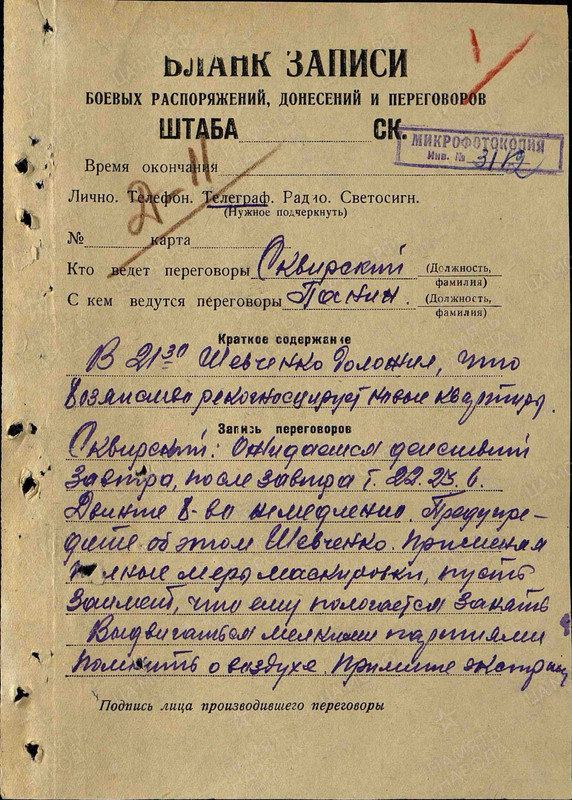 БЛАНК ЗАПИСИ
БОЕВЫХ РАСПОРЯЖЕНИЙ, ДОНЕСЕНИЙ И ПЕРЕГОВОРОВ
ШТАБА СК.
МИКРОФОТОКОПИЯ
Инв. №
Время окончания
Д-11
Лично. Телефон. Телеграф. Радио. Светосигн.
(Нужное подчеркнуть)
№ карта
Кто ведет переговоры Сквирский (Должность, фамилия)
С кем ведутся переговоры Панин. (Должность, фамилия)
Краткое содержание
В 21 30 Шевченко доложил, что
хозяйство рекогносцирует новые квартиры.
Запись переговоров
Сквирский: Ожидаем действий
завтра, после завтра т. 22. 23. 6.
Двиньте х-во немедленно. Предупре-
дите об этом Шевченко. Применяя
полные меры маскировки, пусть
займет, что ему полагается занять
Выдвигаться мелкими партиями
помнить о воздухе. Примите
Подпись лица производившего переговоры